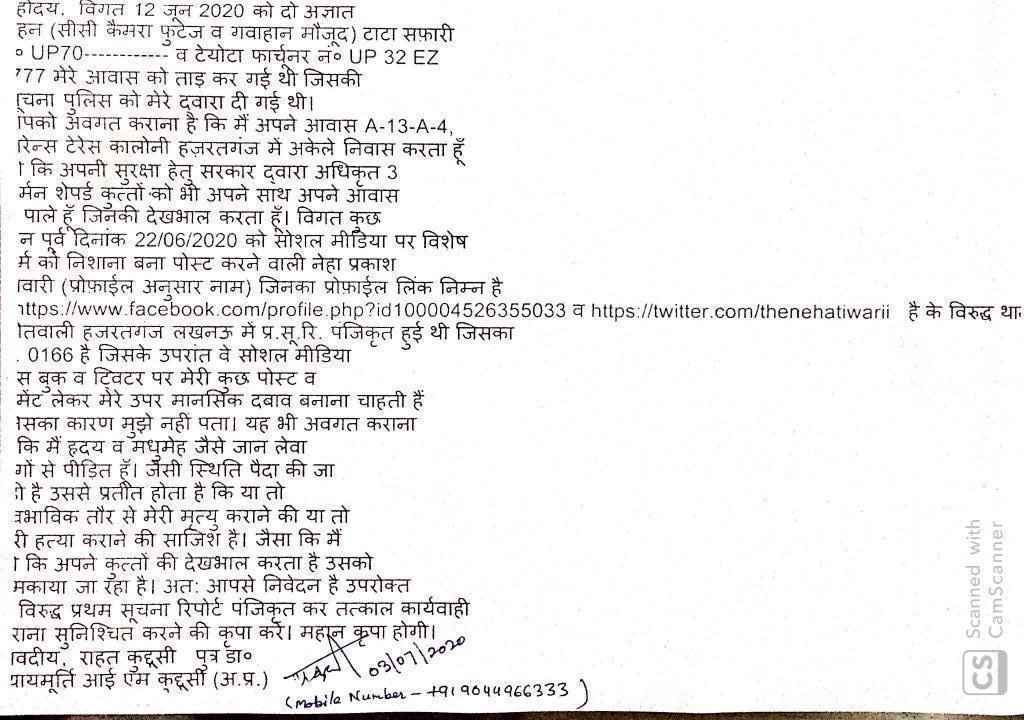 होदय, विगत 12 जून 2020 को दो अज्ञात
हन (सीसी कैमरा फुटेज व गवाहान मौजूद) टाटा सफ़ारी
॰ UP70------------ व टेयोटा फार्चूनर नं॰ UP 32 EZ
777 मेरे आवास को ताड़ कर गई थी जिसकी
चना पुलिस को मेरे द्वारा दी गई थी।
पको अवगत कराना है कि मैं अपने आवास A-13-A-4,
रेन्स टेरेस कालोनी हज़रतगंज में अकेले निवास करता हूँ
कि अपनी सुरक्षा हेतु सरकार द्वारा अधिकृत 3
र्मन शेपर्ड कुत्तों को भी अपने साथ अपने आवास
पाले हूँ जिनकी देखभाल करता हूँ। विगत कुछ
न पूर्व दिनांक 22/06/2020 को सोशल मीडिया पर विशेष
र्म को निशाना बना पोस्ट करने वाली नेहा प्रकाश
वारी (प्रोफ़ाईल अनुसार नाम) जिनका प्रोफ़ाईल लिंक निम्न है
ttps://www.facebook.com/profile.php?id100004526355033 व https://twitter.com/thenehatiwarii है के विरुद्ध था
तवाली हजरतगंज लखनऊ में प्र.सू.रि. पंजिकृत हुई थी जिसका
. 0166 है जिसके उपरांत वे सोशल मीडिया
स बुक व ट्विटर पर मेरी कुछ पोस्ट व
मेंट लेकर मेरे उपर मानसिक दबाव बनाना चाहती हैं
सका कारण मुझे नहीं पता। यह भी अवगत कराना
कि मैं हृदय व मधुमेह जैसे जान लेवा
गों से पीड़ित हूँ। जैसी स्थिति पैदा की जा
है उससे प्रतीत होता है कि या तो
भाविक तौर से मेरी मृत्यु कराने की या तो
री हत्या कराने की साजिश है। जैसा कि मैं
कि अपने कुत्तों की देखभाल करता है उसको
मकाया जा रहा है। अत: आपसे निवेदन है उपरोक्त
विरुद्ध प्रथम सूचना रिपोर्ट पंजिकृत कर तत्काल कार्यवाही
राना सुनिश्चित करने की कृपा करें। महान कृपा होगी।
वदीय, राहत कुद्दूसी पुत्र डा॰
03/07/2020
ायमूर्ति आई एम कुद्दूसी (अ.प्र.)
(Mobile Number - +919044966333)
Scanned with
CamScanner
CS